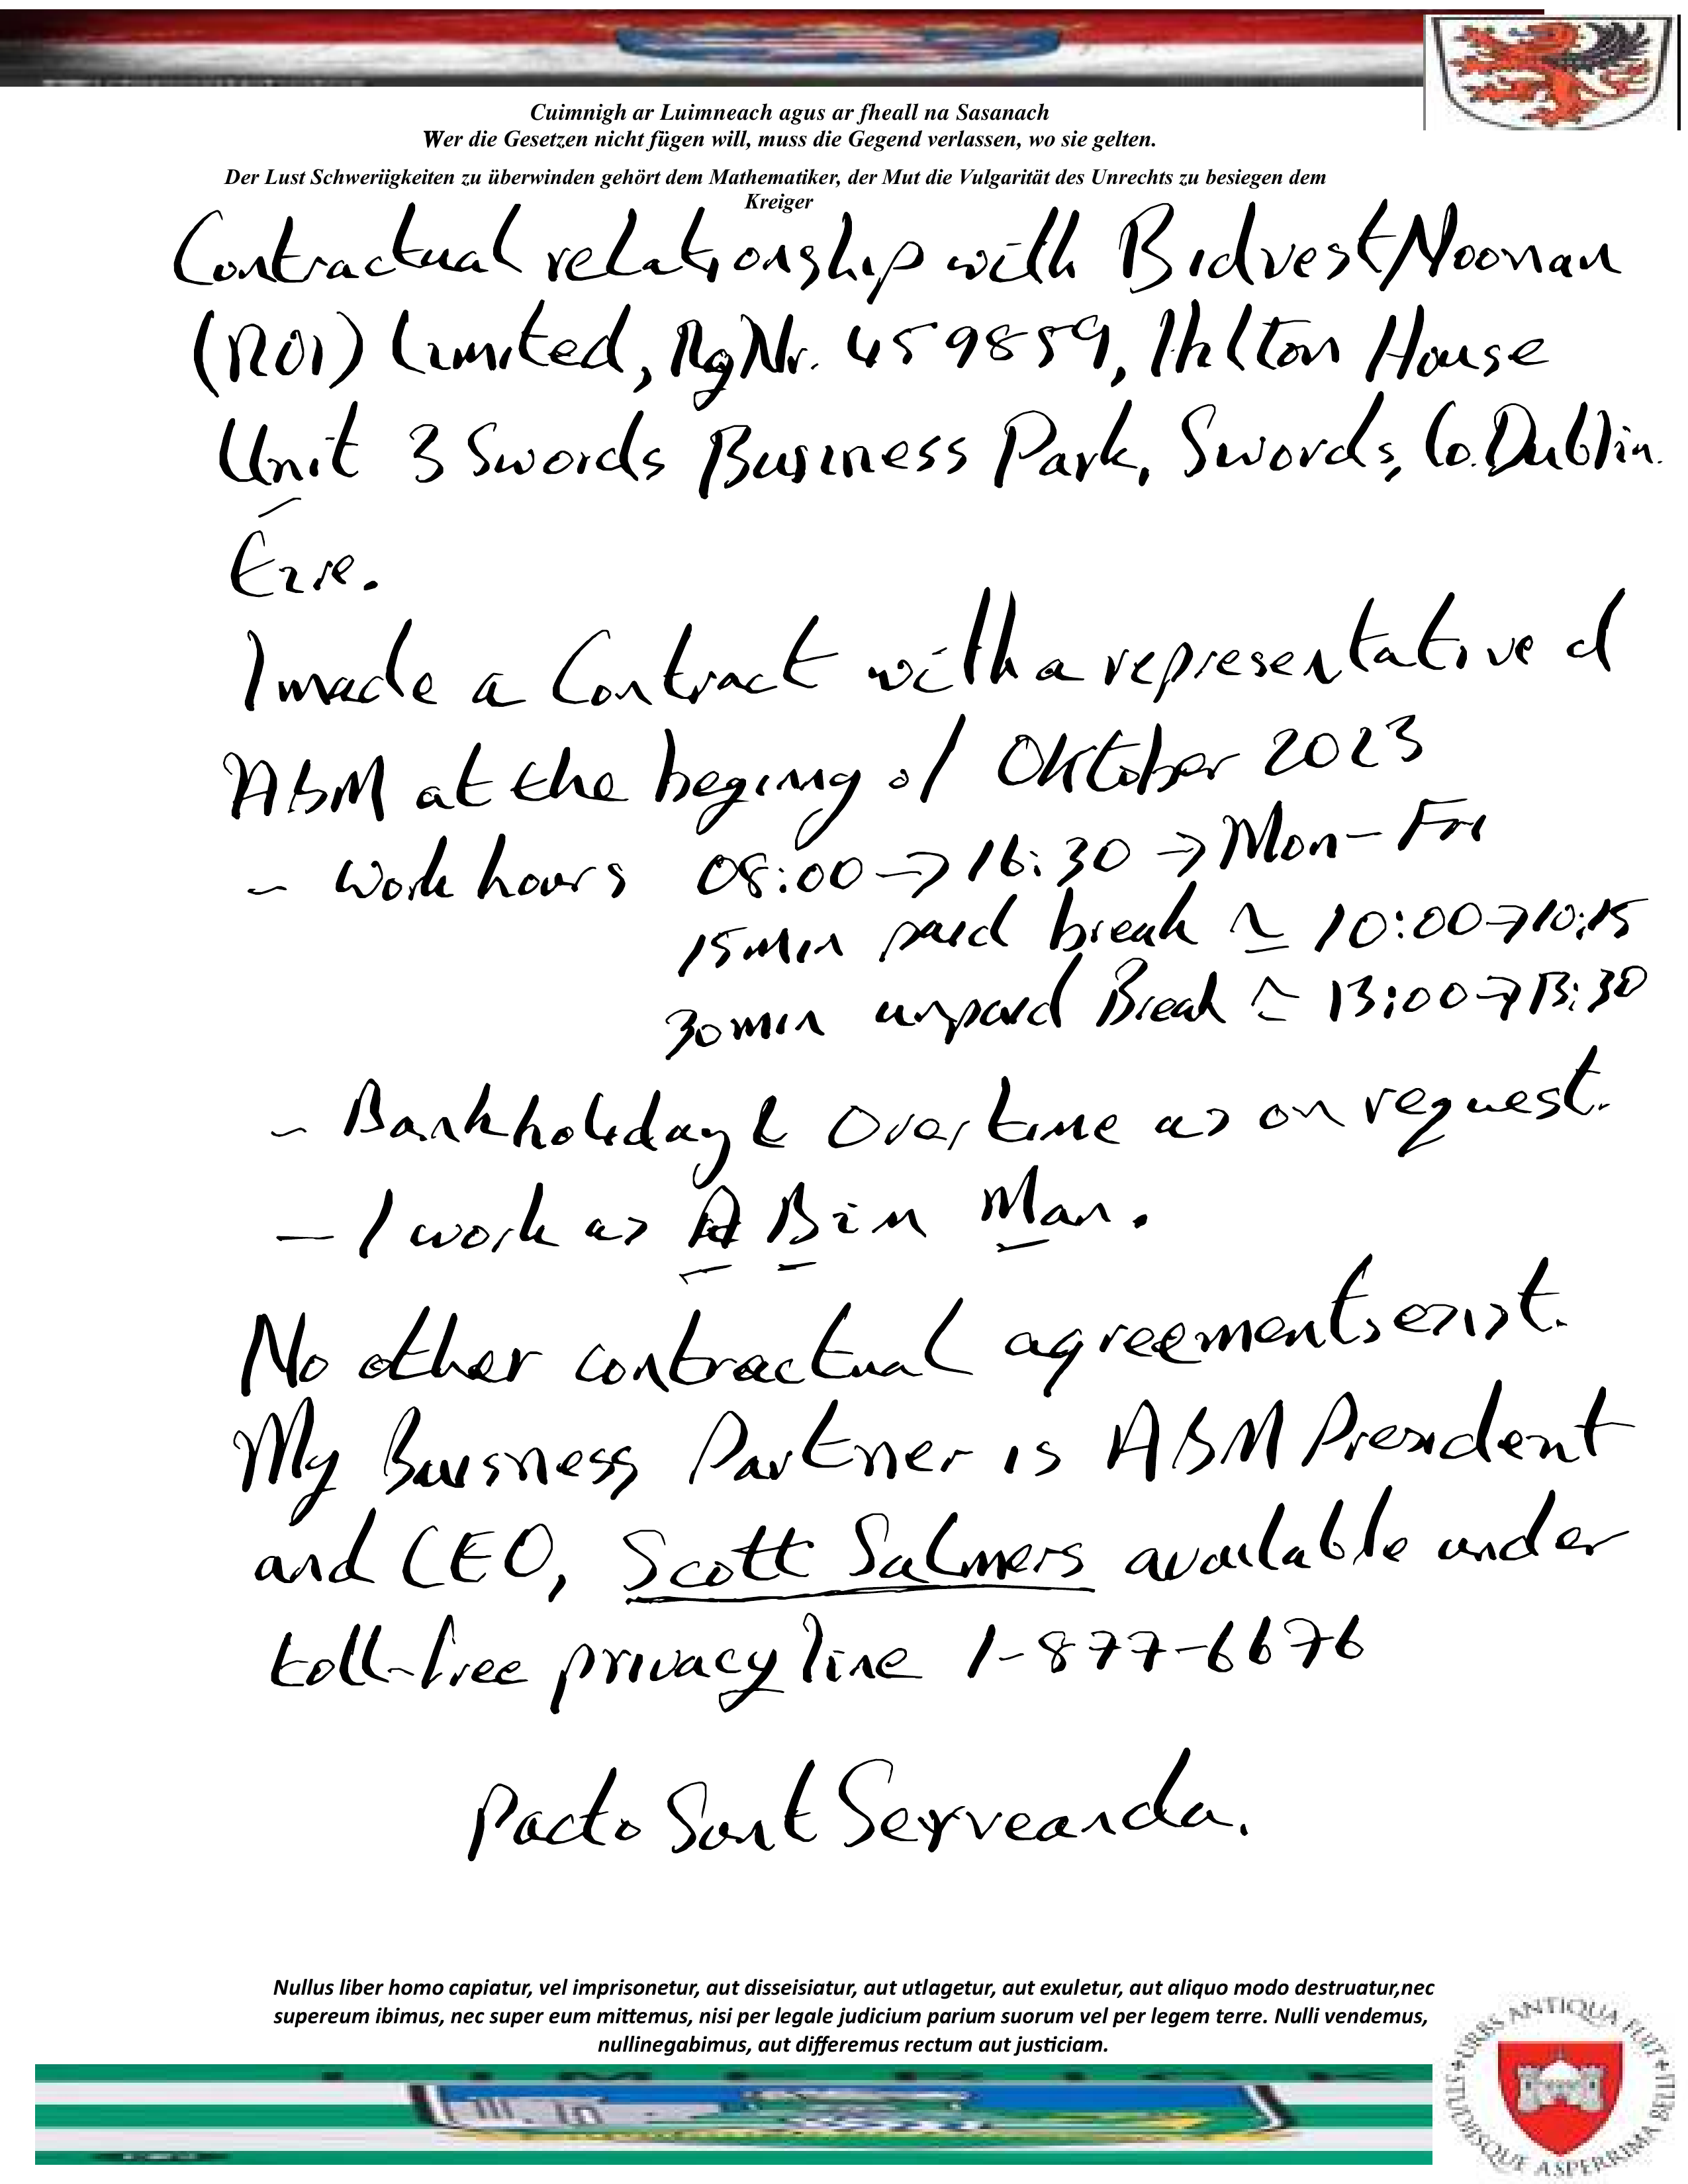 Cuimnigh ar Luimneach agus ar fheall na Sasanach
Wer die Gesetzen nicht fügen will, muss die Gegend verlassen, wo sie gelten.
Der Lust Schweriigkeiten zu überwinden gehört dem Mathematiker, der Mut die Vulgarität des Unrechts zu besiegen dem
Kreiger
Contractual relationship with Bidvest Noonan
(ROI) Limited, RgNr. 459859, Hilton House
Unit 3 Swords Business Park, Swords, Co. Dublin.
Éire.
I made a Contract with a representative of
ABM at the begining of Oktober 2023
- Work hours 08:00 → 16:30 → Mon - Fri
15min paid break ≃ 10:00 → 10:15
30min unpaid Break ≃ 13:00 → 13:30
- Bankholiday & Overtime as on request.
- I work as A Bin Man.
No other contractual agreements exist.
My Buisness Partner is ABM President
and CEO, Scott Salmers available under
toll-free privacy line 1-877-6676
Pacto Sunt Serveanda.
Nullus liber homo capiatur, vel imprisonetur, aut disseisiatur, aut utlagetur, aut exuletur, aut aliquo modo destruatur,nec
supereum ibimus, nec super eum mittemus, nisi per legale judicium parium suorum vel per legem terre. Nulli vendemus,
nullinegabimus, aut differemus rectum aut justiciam.
URBS ANTIQUA FUIT STUDIISQUE ASPERRIMA BELLI